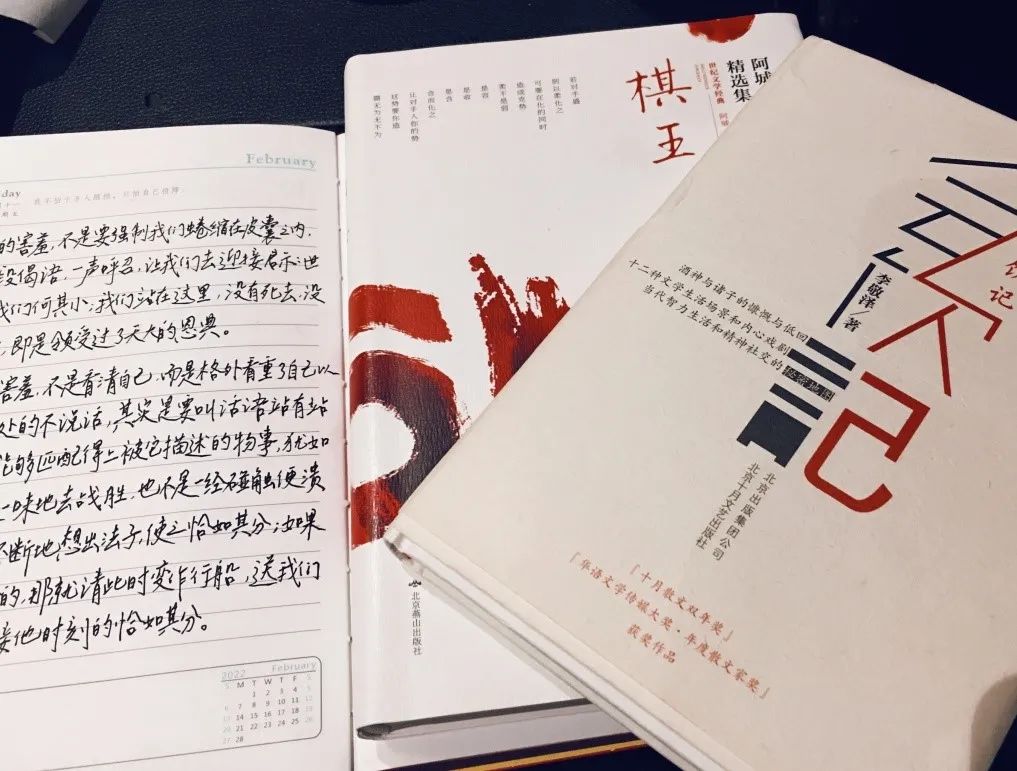 February
day
十一
期五
我不怕千万人阻挡，只怕自己投降
的害羞，不是要强制我们蜷缩在皮囊之内，
段偈语，一声呼召，让我们去迎接启示：世
我们何其小，我们站在这里，没有死去，没
，即是领受过了天大的恩典。
害羞，不是看清自己，而是格外看重了自己以
处的不说话，其实是要叫话语站有站
能够匹配得上被它描述的物事，犹如
一味地去战胜，也不是一经碰触便溃
不断地想出法子，使之恰如其分；如果
的，那就请此时变作行船，送我们
接他时刻的恰如其分。
2022 February
S M T W T F S
1 2 3 4 5
6 7 8 9 10 11 12
13 14 15 16 17 18 19
20 21 22 23 24 25 26
27 28
阿城
精选集
世纪文学经典
棋王
若对手盛
则以柔化之
可要在化的同时
造成克势
柔不是弱
是容
是收
是含
含而化之
让对手入你的势
这势要你造
需无为无不为
北京燕山出版社
饮记
記
李敬泽/著
酒神与诸子的慷慨与低回
十二种文学生活场景和内心戏剧
当代智力生活和精神社交的秘密地图
北京出版集团公司
北京十月文艺出版社
『十月散文双年奖』
『华语文学传媒大奖·年度散文家奖』
获奖作品